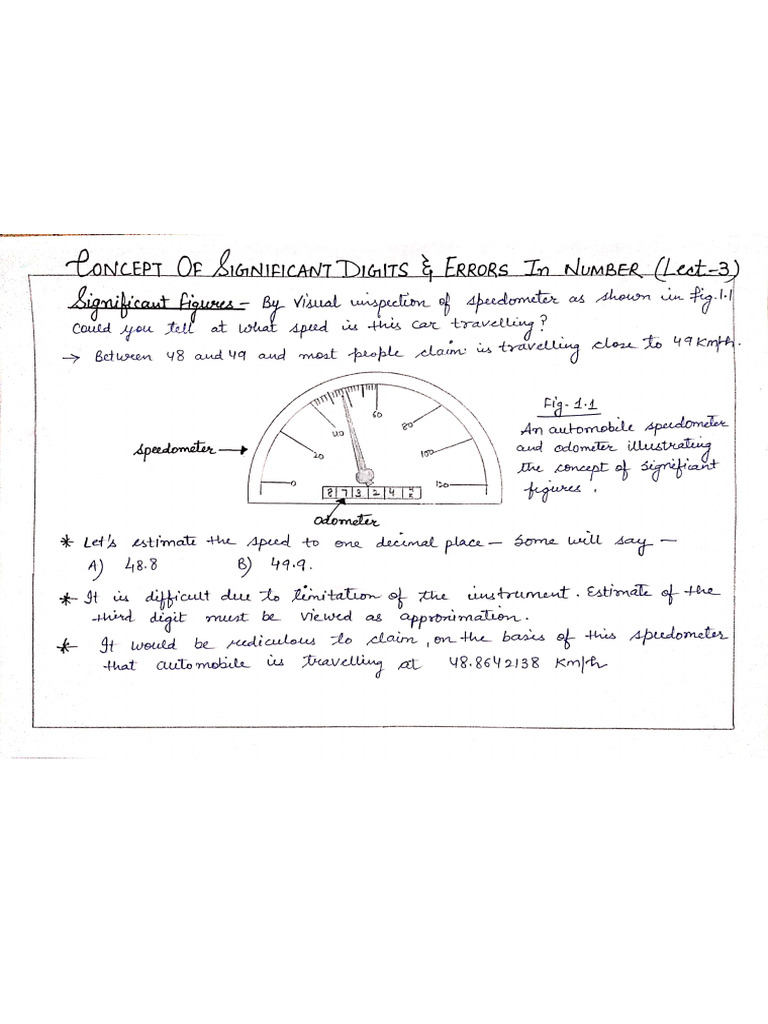 CONCEPT OF SIGNIFICANT DIGITS & ERRORS In NUMBER (Lect-3)
Significant figures - By Visual inspection of speedometer as shown in fig.1.1
could you tell at what speed is this car travelling?
→ Between 48 and 49 and most people claim is travelling close to 49 Kmph.
Fig-1.1
An automobile speedometer
and odometer illustrating
the concept of significant
figures.
speedometer →
0
20
40
60
80
100
120
8 7 3 2 4
odometer
* Let's estimate the speed to one decimal place — some will say —
A) 48.8 B) 49.9.
* It is difficult due to limitation of the instrument. Estimate of the
third digit must be viewed as approximation.
* It would be rediculous to claim, on the basis of this speedometer
that automobile is travelling at 48.8642138 Km/h